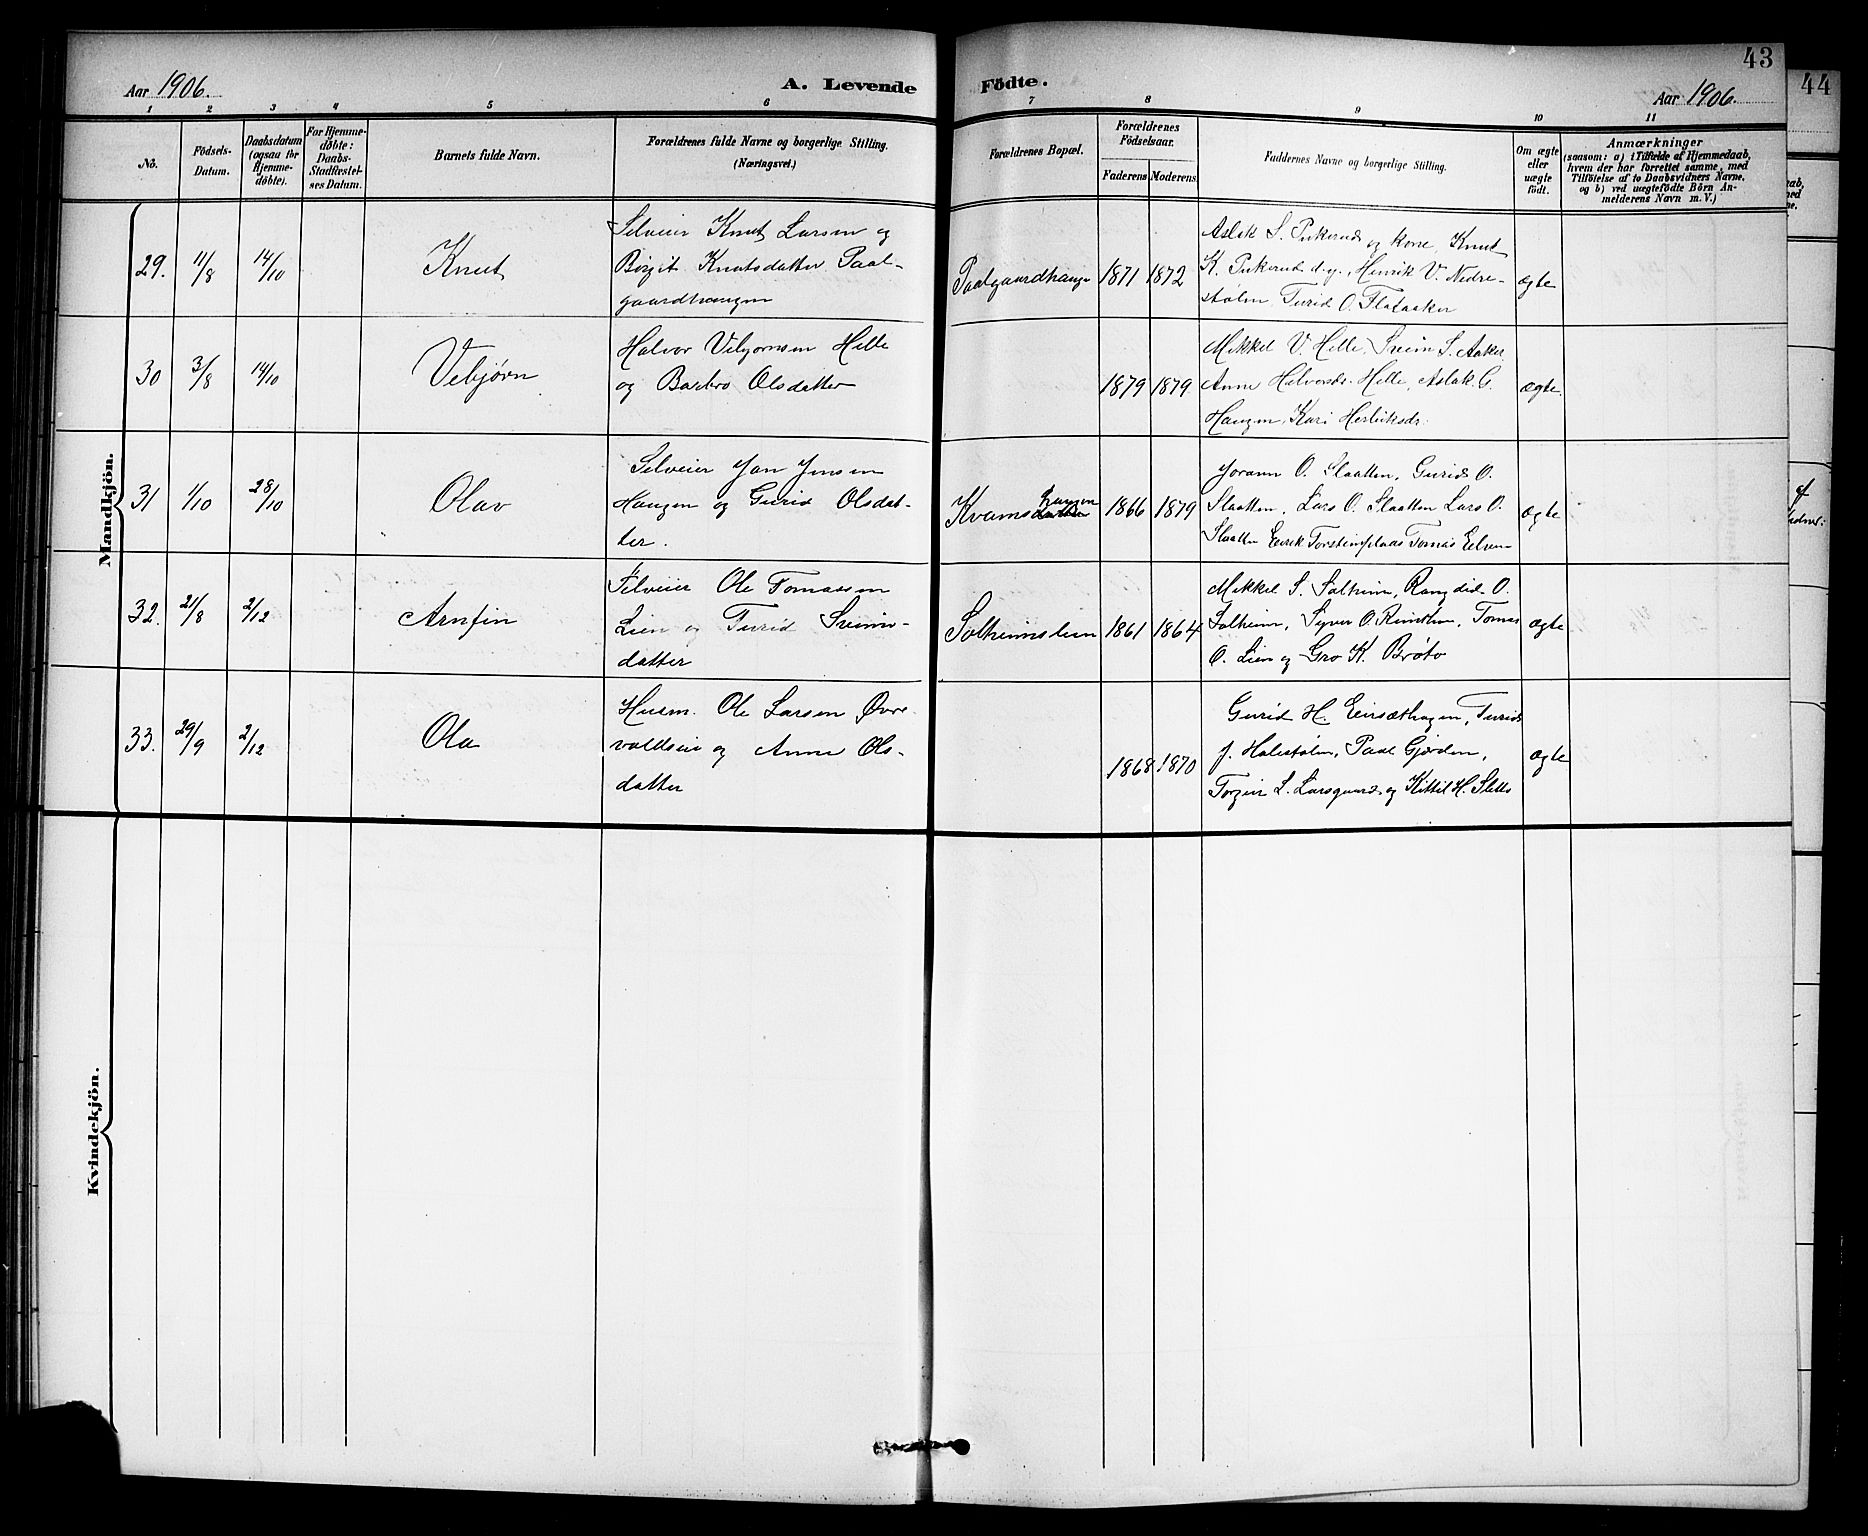 43
44
Aar 1906.
A. Levende Födte.
Aar 1906.
1 2 3 4 5 6 7 8 9 10 11
No.
Födsels-Datum.
Daabsdatum (ogsaa for Hjemme-døbte).
For Hjemme-døbte: Daabs-Stadfæstel-ses Datum.
Barnets fulde Navn.
Forældrenes fulde Navne og borgerlige Stilling.
(Næringsvei.)
Forældrenes Bopæl.
Forældrenes Födselsaar.
Faderens Moderens
Faddernes Navne og borgerlige Stilling.
Om ægte eller uægte födt.
Anmærkninger
(saasom: a) i Tilfælde af Hjemmedaab,
hvem der har forrettet samme, med
Tilföielse af to Daabsvidners Navne,
og b) ved uægtefödte Börn An-
melderens Navn m. V.)
Mandkjön.
29. 11/8 14/10 Knut
Selveier Knut Larsen og
Birgit Knutsdatter Paal-
gaardhaugen
Paalgaardhauge 1871 1872
Aslak S. Pukerud og kone, Knut
K. Pukerud d.y., Henrik V. Nedre-
stølen, Turid O. Flataaker
ægte
30 3/8 14/10 Vebjørn
Halvor Vebjørnsen Hille
og Barbro Olsdatter
1879 1879
Mikkel V. Hille, Svein S. Aaker
Anne Halvorsdr. Hille, Aslak G.
Haugen, Kari Herbiksdr.
ægte
31 1/10 28/10 Olav
Selveier Jon Jensen
Haugen og Gurid Olsdat-
ter.
Kvamshaugen 1866 1879
Joramn O. Slaatten, Gurid O.
Slaatten, Lars O. Slaatten Lars O.
Slaatten Eirik Torsteinplads Tomas
ægte
32. 21/8 2/12 Arnfin
Selveier Ole Tomassen
Lien og Turid Sveins-
datter
Solheimslien 1861 1864
Mikkel S. Solheim, Rangdid O.
Solheim, Syver O. Tomas
O. Lien og Gro K. Brøto
ægte
33. 29/9 2/12 Ola
Husm. Ole Larsen Øvre-
voldseie og Anne Ols-
datter
1868 1870
Gurid H. Eirsæthagen, Turid
J. Halistølen, Paal Gjorden,
Torgeir L. Larsgaard og Kittil H. Sletto
ægte
Kvindekjön.